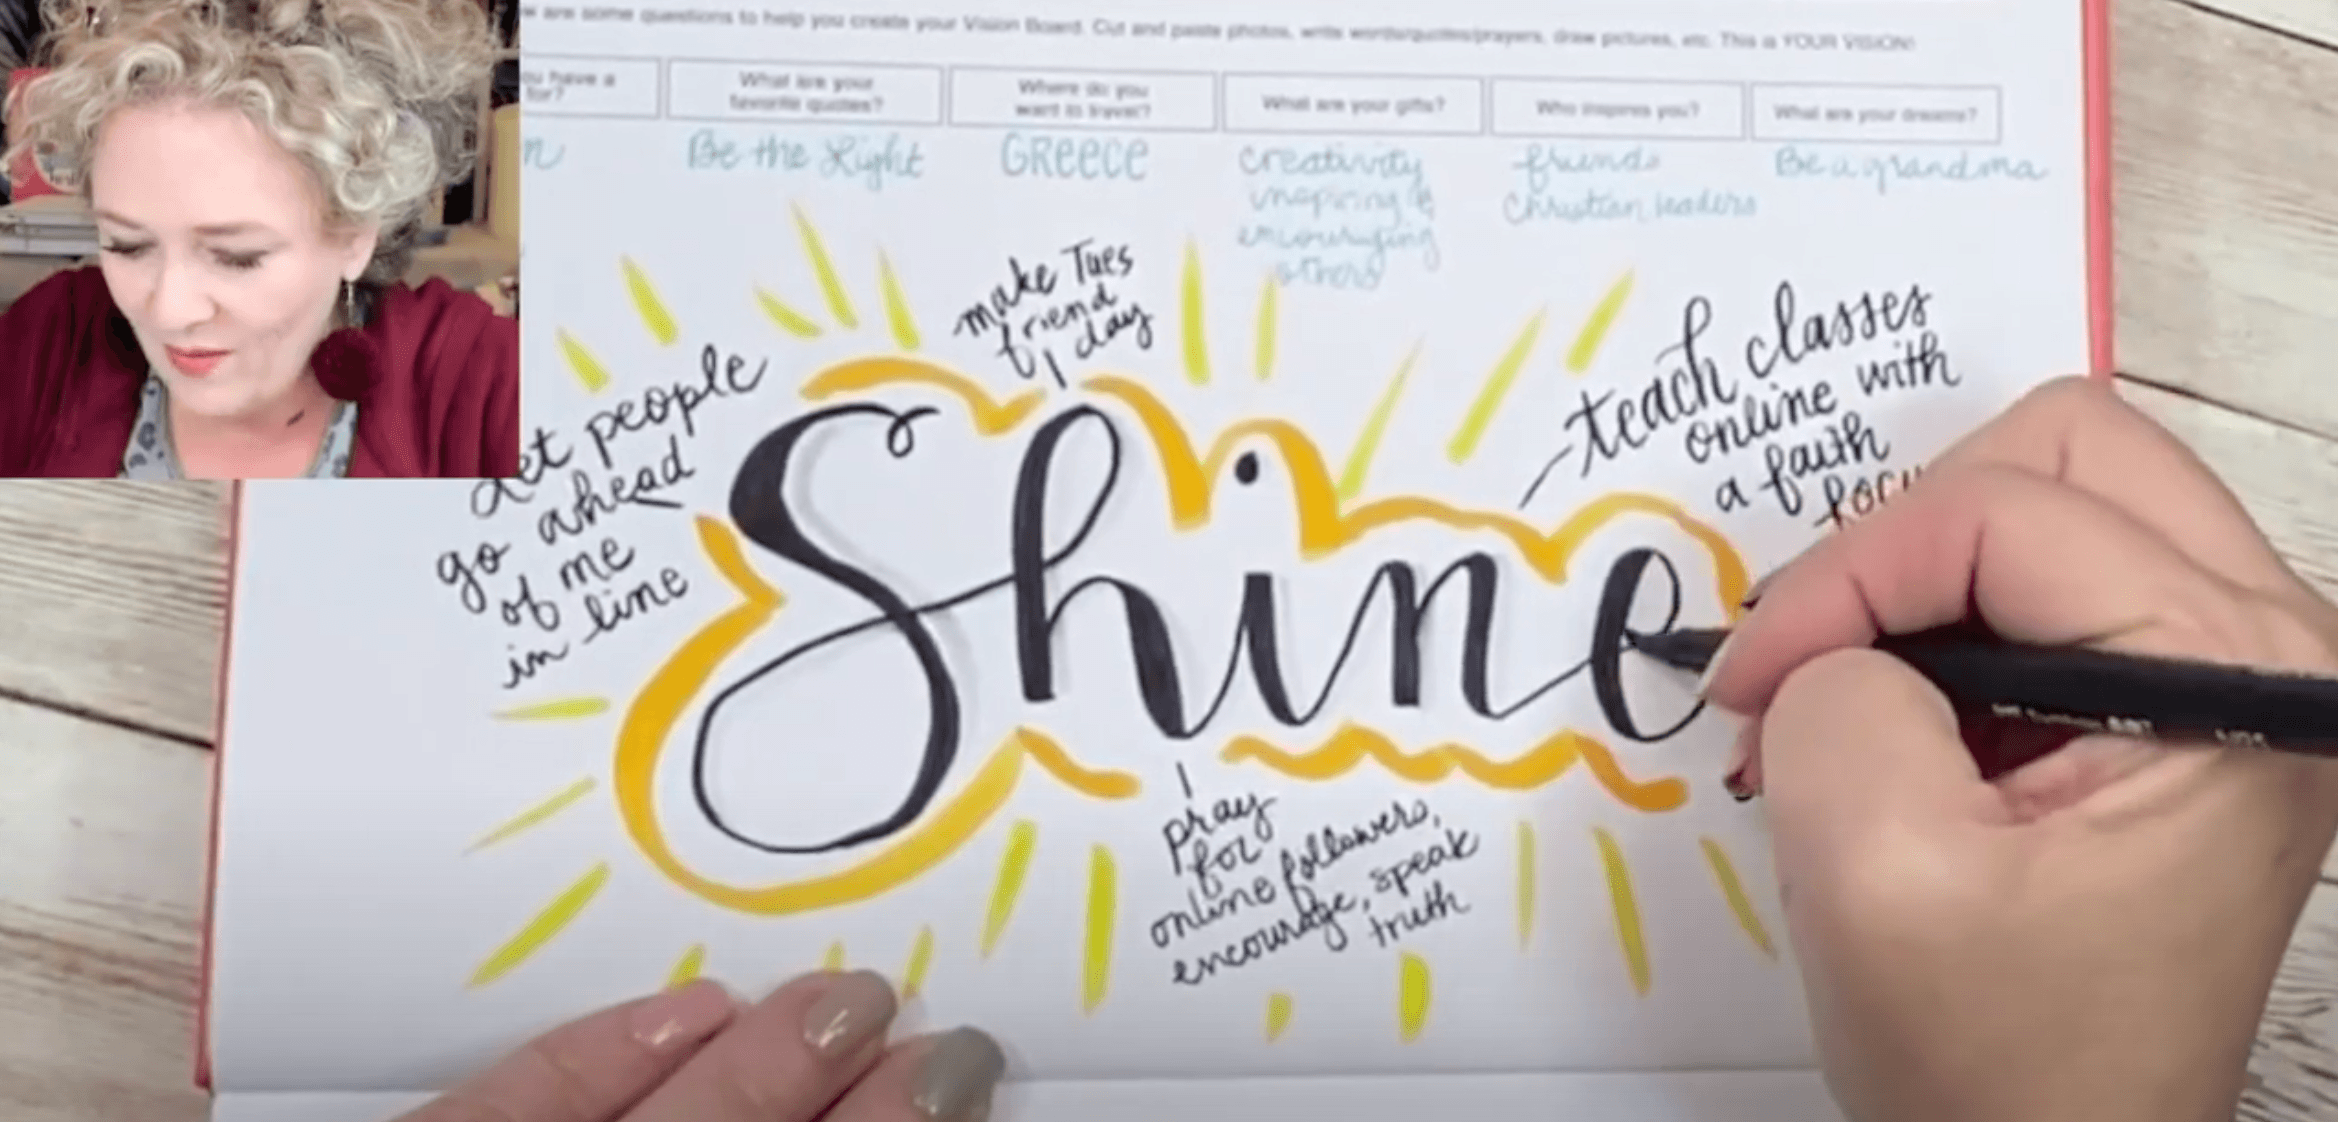 are some questions to help you create your Vision Board. Cut and paste photos, write words/quotes/prayers, draw pictures, etc. This is YOUR VISION!
ou have a
for?
What are your
favorite quotes?
Where do you
want to travel?
What are your gifts?
Who inspires you?
What are your dreams?
n
Be the Light
GREECE
creativity
inspiring &
encouraging
others
friends
Christian leaders
Be a grandma
make Tues
friend
day
Let people
go ahead
of me
in line
teach classes
online with
a faith
focu
Shine
pray
for
online followers,
encourage, speak
truth